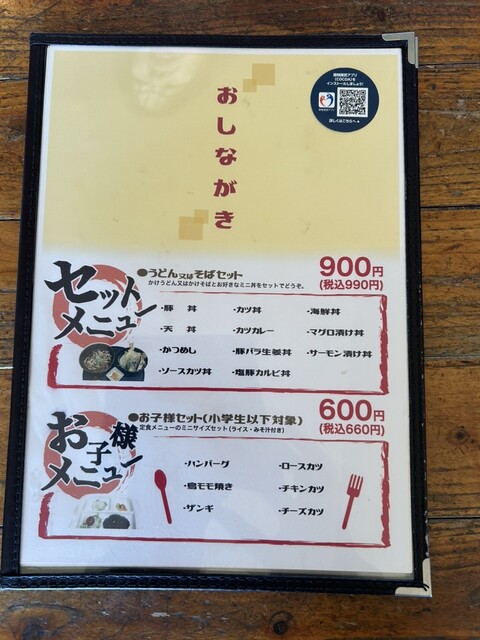 接触確認アプリ
(COCOA)を
インストールしましょう!
詳しくはこちらへ
おしながき
セット
メニュー
●うどん又はそばセット
かけうどん又はかけそばとお好きなミニ丼をセットでどうぞ。
900円
(税込990円)
・豚 丼 ・カツ丼 ・海鮮丼
・天 丼 ・カツカレー ・マグロ漬け丼
・かつめし ・豚バラ生姜丼 ・サーモン漬け丼
・ソースカツ丼 ・塩豚カルビ丼
お子様
メニュー
●お子様セット(小学生以下対象)
定食メニューのミニサイズセット(ライス・みそ汁付き)
600円
(税込660円)
・ハンバーグ ・ロースカツ
・鳥モモ焼き ・チキンカツ
・ザンギ ・チーズカツ